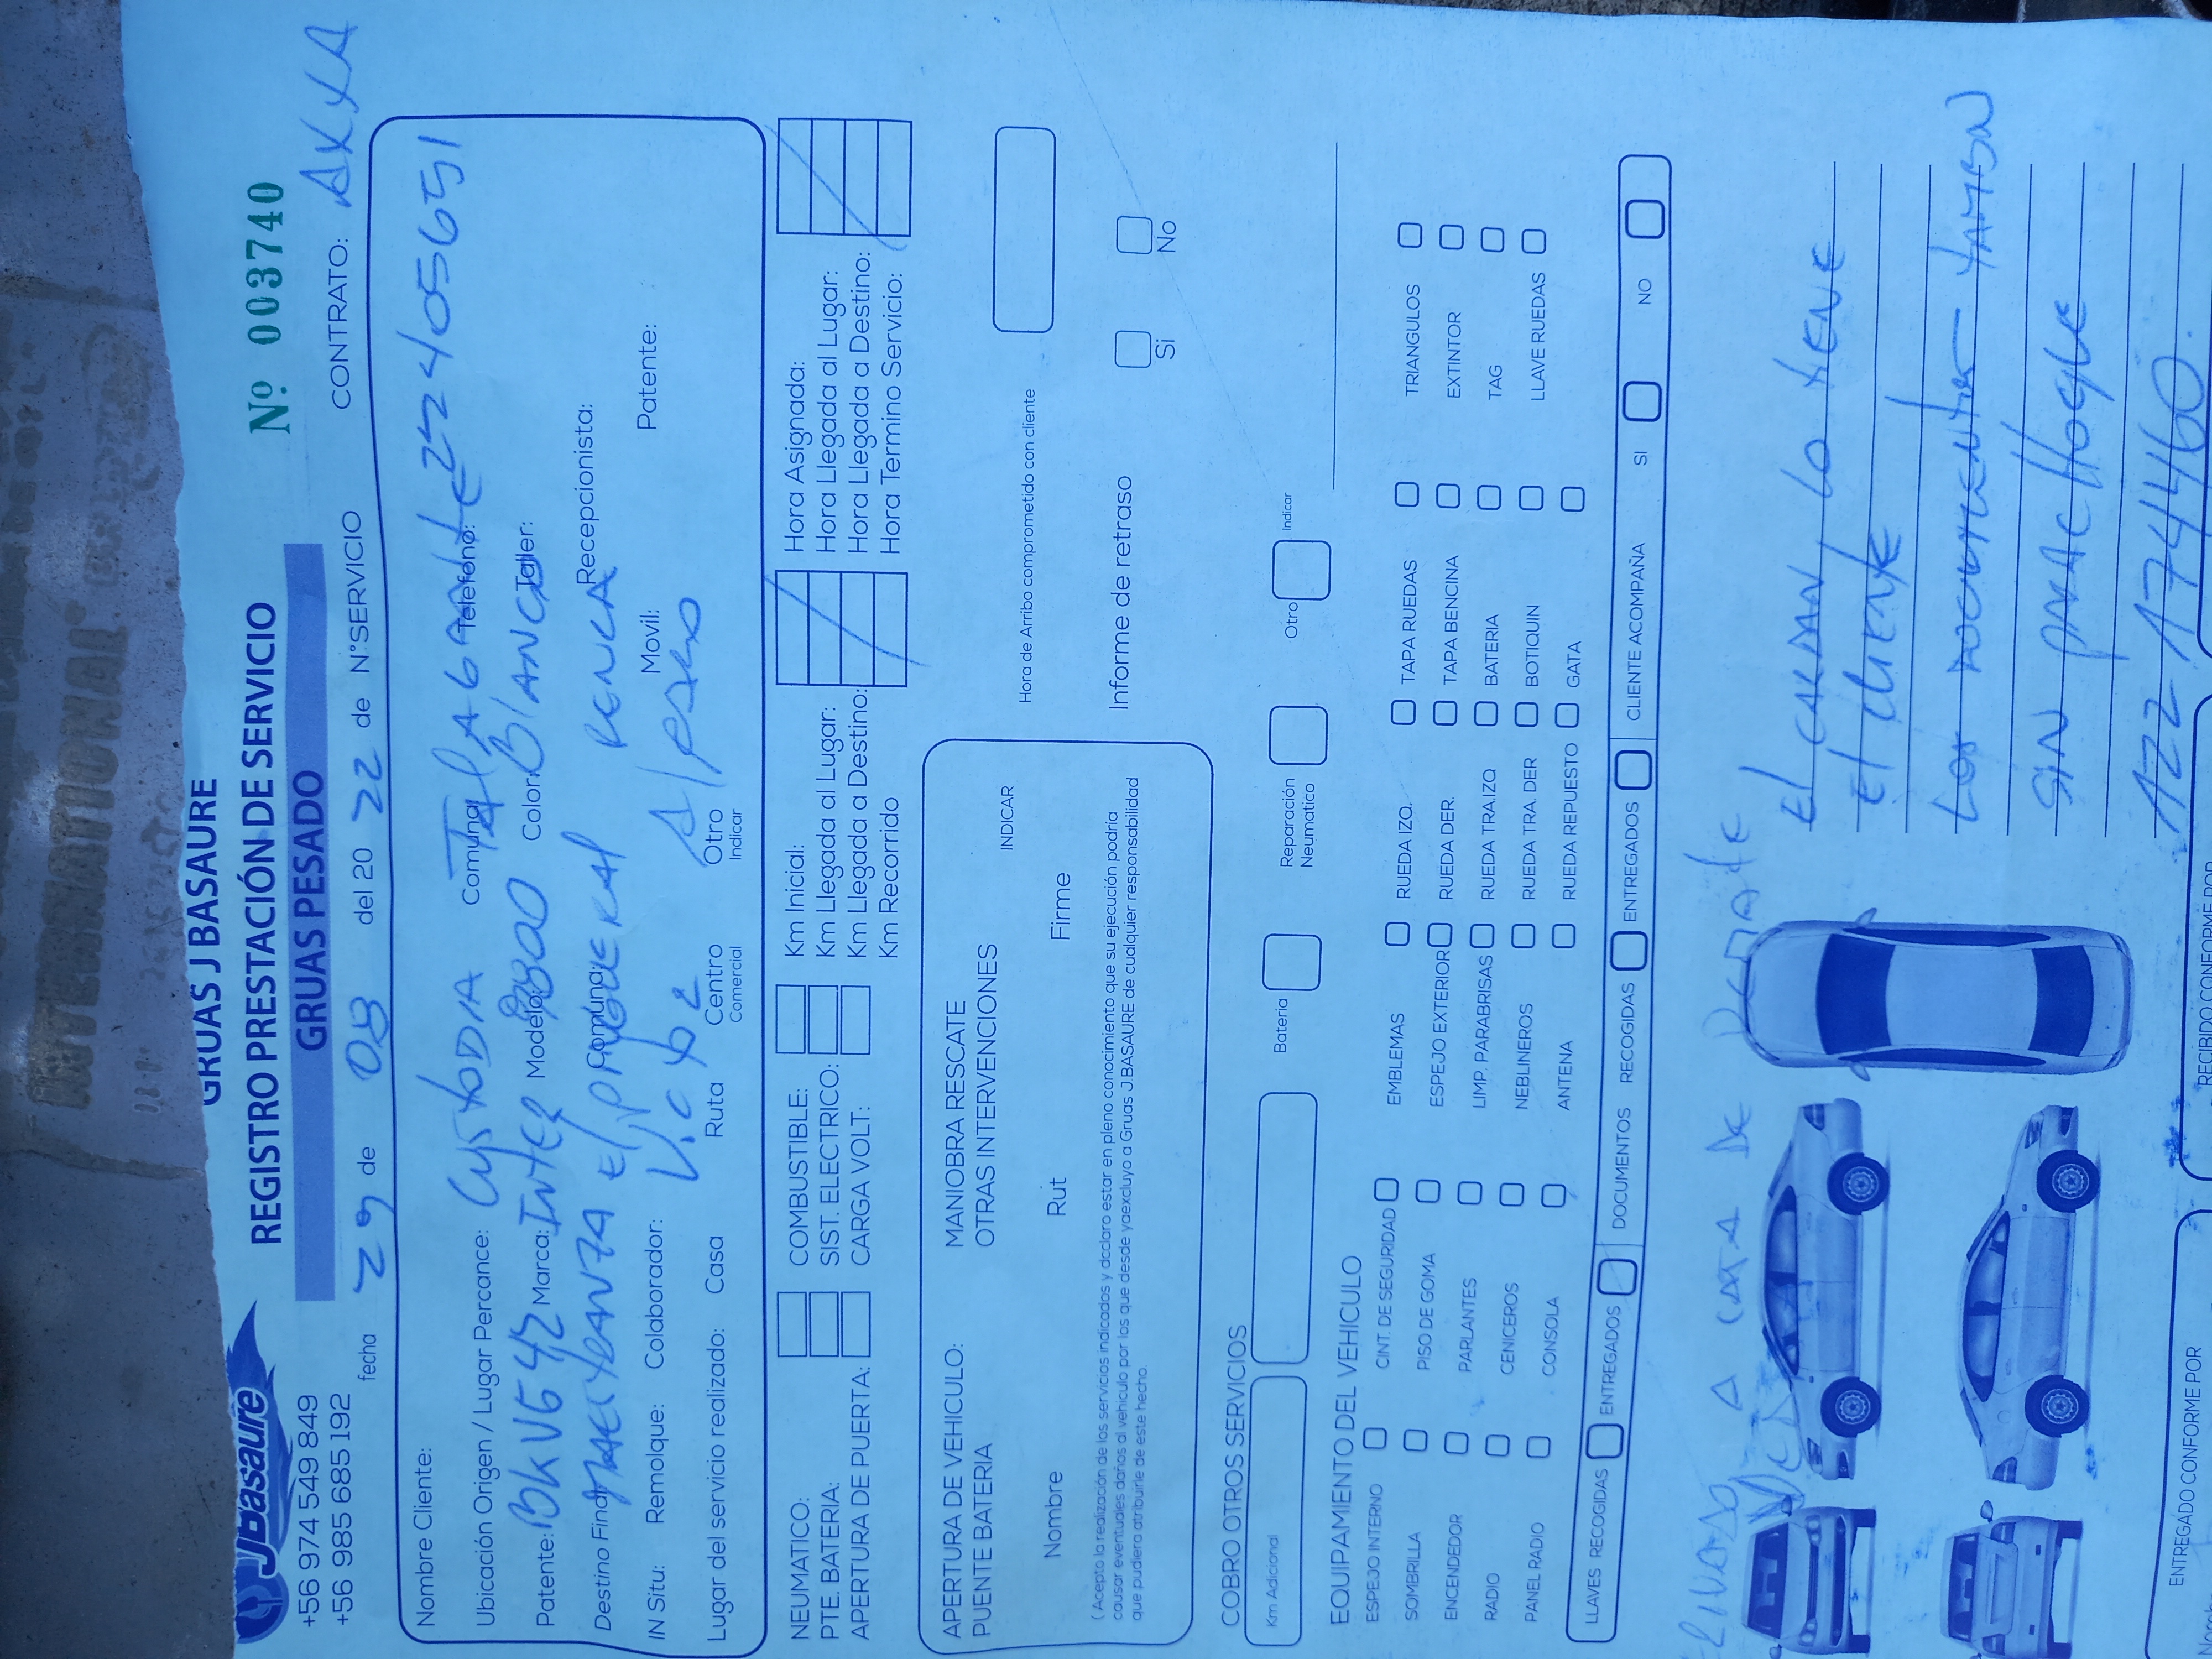 GRUAS J BASAURE
REGISTRO PRESTACIÓN DE SERVICIO
GRUAS PESADO
Nº 003740
Jbasaure
+56 974 549 849
+56 985 685 192
fecha 29 de 08 del 20 22 de N°SERVICIO
CONTRATO: AXXA
Nombre Cliente:
Ubicación Origen / Lugar Percance: Custodia Comuna: Talagante Telefono: 224405651
Patente: BKVG 42 Marca: Inter Modelo: 9800 Color: Blanco Taller:
Destino Final: Comuna: El Peñueral Renca Recepcionista:
IN Situ: Remolque: Colaborador: Movil: Patente:
Lugar del servicio realizado: Casa Ruta Centro Comercial Otro Indicar
NEUMATICO:
PTE. BATERIA:
APERTURA DE PUERTA:
COMBUSTIBLE:
SIST. ELECTRICO:
CARGA VOLT:
Km Inicial:
Km Llegada al Lugar:
Km Llegada a Destino:
Km Recorrido
Hora Asignada:
Hora Llegada al Lugar:
Hora Llegada a Destino:
Hora Termino Servicio:
APERTURA DE VEHICULO:
PUENTE BATERIA
MANIOBRA RESCATE
OTRAS INTERVENCIONES
INDICAR
Nombre Rut Firme
( Acepto la realización de los servicios indicados y dcclaro estar en pleno conocimiento que su ejecución podría
causar eventuales daños al vehículo por los que desde yaexcluyo a Gruas J.BASAURE de cualquier responsabilidad
que pudiera atribuirle de este hecho.
Hora de Arribo comprometido con cliente
Informe de retraso
Si No
COBRO OTROS SERVICIOS
Km Adicional
Batería
Reparación Neumatico
Otro
Indicar
EQUIPAMIENTO DEL VEHICULO
ESPEJO INTERNO CINT. DE SEGURIDAD EMBLEMAS RUEDA IZQ. TAPA RUEDAS TRIANGULOS
SOMBRILLA PISO DE GOMA ESPEJO EXTERIOR RUEDA DER. TAPA BENCINA EXTINTOR
ENCENDEDOR PARLANTES LIMP. PARABRISAS RUEDA TRA.IZQ BATERIA TAG
RADIO CENICEROS NEBLINEROS RUEDA TRA. DER BOTIQUIN LLAVE RUEDAS
PANEL RADIO CONSOLA ANTENA RUEDA REPUESTO GATA
LLAVES RECOGIDAS ENTREGADOS DOCUMENTOS RECOGIDAS ENTREGADOS CLIENTE ACOMPAÑA SI NO
A casa de Remate
El cardan lo tiene
el cliente
Los documentos
sin
122 174460.
ENTREGADO CONFORME POR
RECIBIDO CONFORME POR